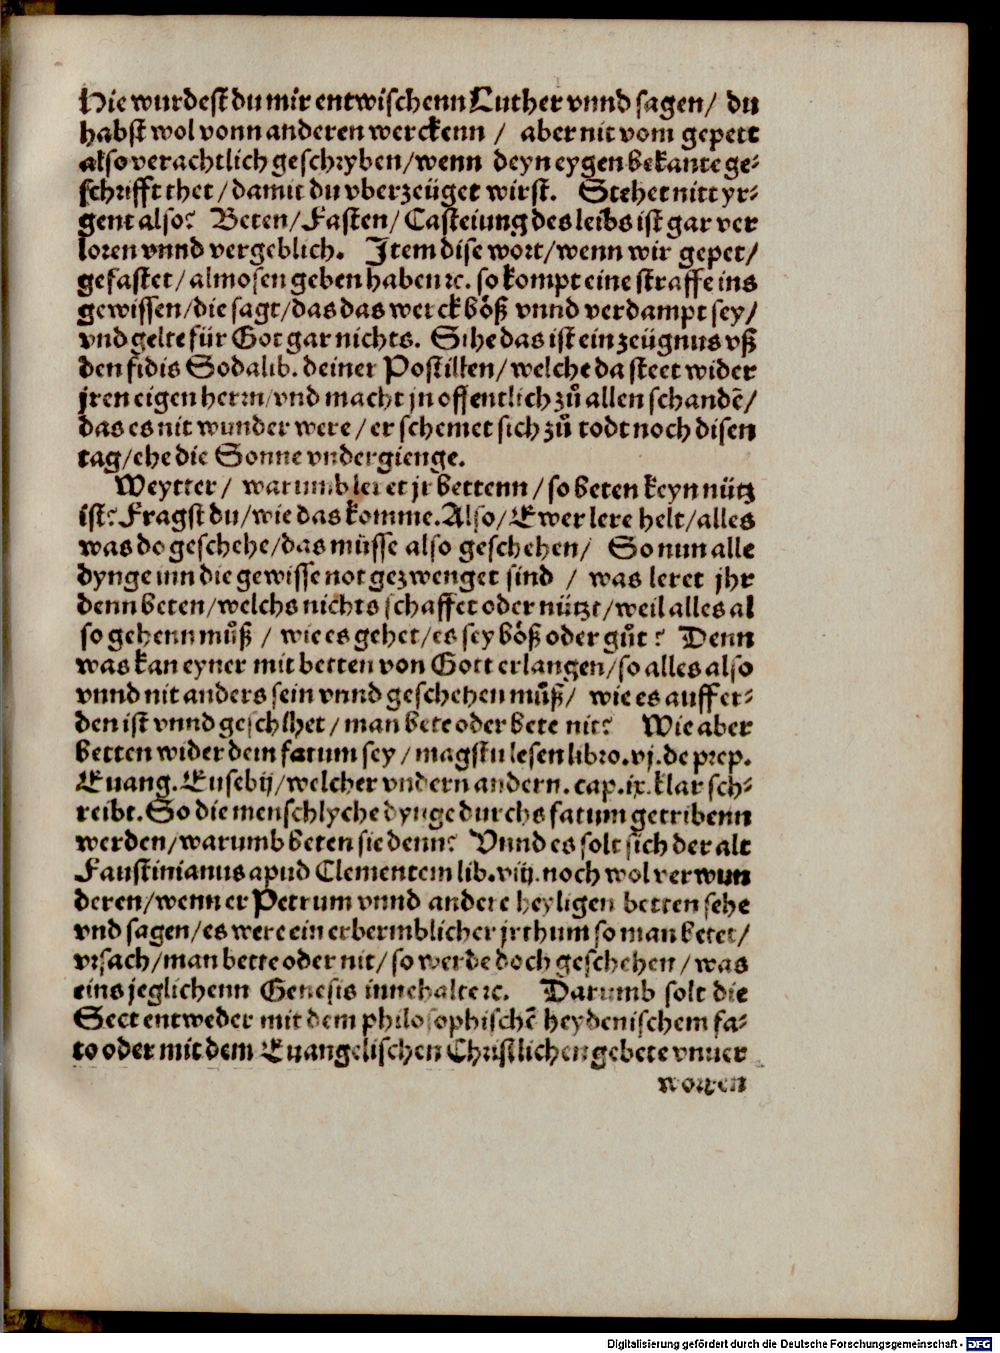 Hie wurdest du mir entwischenn Luther vnnd sagen/ du
habst wol vonn anderen werckenn / aber nit vom gepett
also verachtlich geschryben/wenn deyn eygen bekante ge-
schrifft thet/damit du vberzeüget wirst. Stehet nitt yr-
gent also? Beten/Fasten/Casteiung des leibs ist gar ver
loren vnnd vergeblich. Item dise wort/wenn wir gepet/
gefastet/almosen geben haben ꝛc. so kompt eine straffe ins
gewissen/die sagt/das das werck böß vnnd verdampt sey/
vnd gelte für Got gar nichts. Sihe das ist ein zeügnus vß
den fidis Sodalib. deiner Postillen/welche da steet wider
jren eigen herrn/vnd macht jn offentlich zů allen schandē/
das es nit wunder were/er schemet sich zů todt noch disen
tag/ehe die Sonne vndergienge.
Weytter/ warumb leret jr bettenn/so beten keyn nütz
ist? Fragst du/wie das komme. Also/Ewer lere helt/alles
was do geschehe/das müsse also geschehen/ So nun alle
dynge inn die gewisse not gezwenget sind / was leret jhr
denn beten/welchs nichts schaffet oder nützt/weil alles al
so gehenn můß / wie es gehet/es sey böß oder gůt? Denn
was kan eyner mit betten von Gott erlangen/so alles also
vnnd nit anders sein vnnd geschehen můß/ wie es auff er-
den ist vnnd geschlhet/man bete oder bete nit? Wie aber
betten wider dem fatum sey/magstu lesen libro.vj.de prep.
Euang. Eusebij/welcher vndern andern. cap.ix.klar sch-
reibt. So die menschlyche dynge durchs fatum getribenn
werden/warumb beten sie denn? Vnnd es solt sich der alt
Faustinianus apud Clementem lib.viij.noch wol verwun
deren/wenn er Petrum vnnd andere heyligen betten sehe
vnd sagen/es were ein erbermblicher jrthum so man betet/
vrsach/man bette oder nit/so werde doch geschehen/was
eins jeglichenn Genesis innehalte ꝛc. Darumb solt die
Sect entweder mit dem philosophischē heydenischem fa-
to oder mit dem Euangelischen Christlichen gebete vnuer
worren
Digitalisierung gefördert durch die Deutsche Forschungsgemeinschaft - DFG